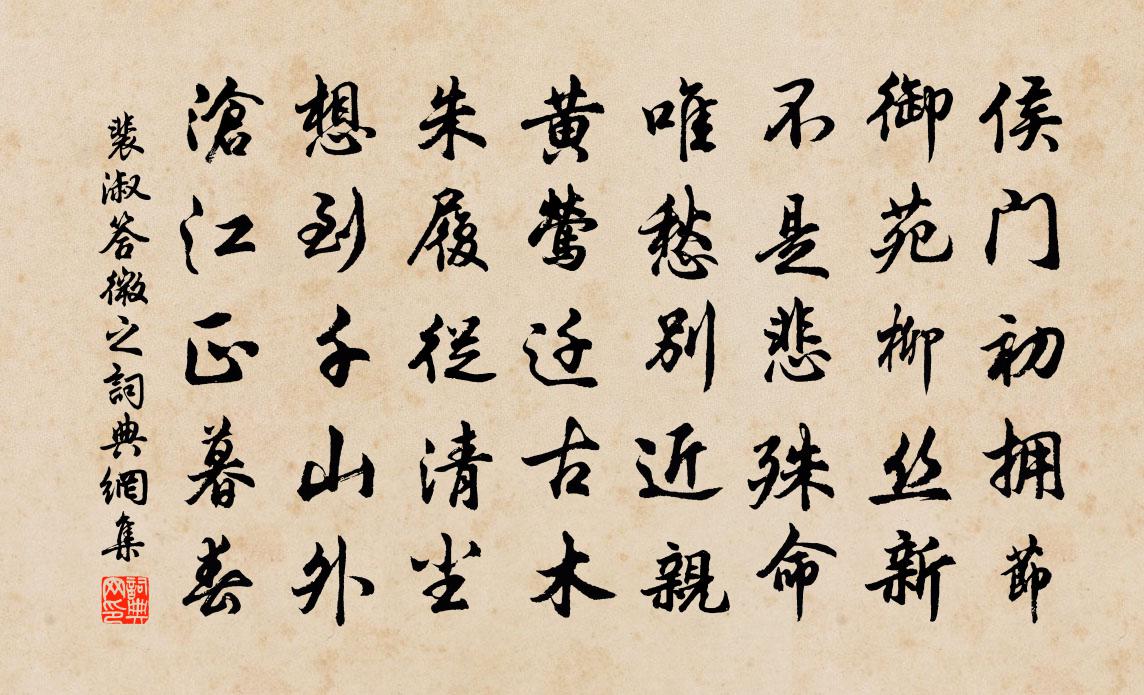 侯门初拥節
御苑柳丝新
不是悲殊命
唯愁別近親
黄鶯迁古木
朱履從清尘
想到千山外
滄江正暮春
裴淑答微之詞典網集
詞典网印